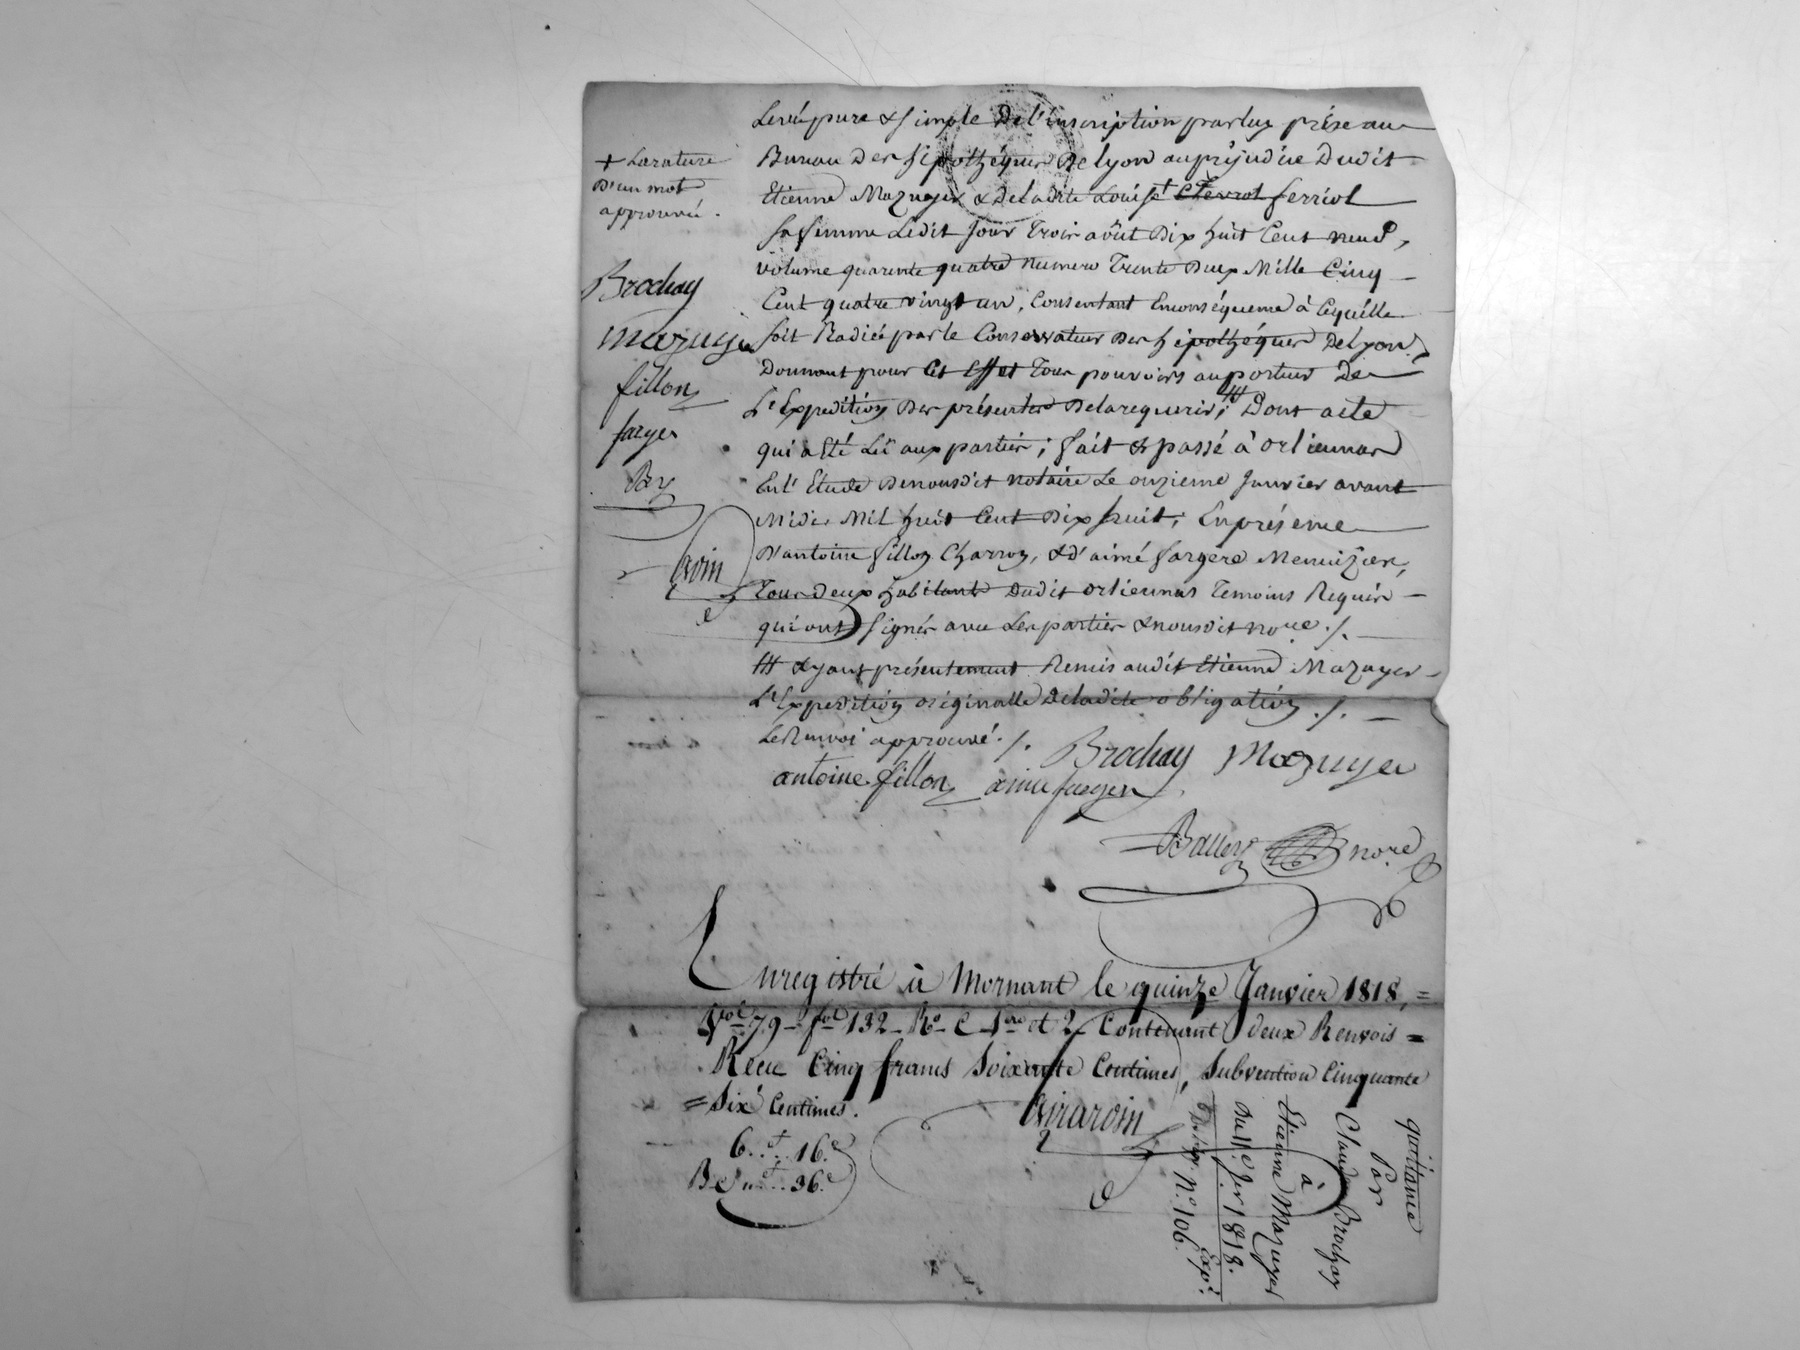 Levée pure & simple de l'inscription par luy prise au
Bureau des hipothéques de Lyon au préjudice dudit
Etienne Mazuyer & de ladite Louise + Ferriol
sa femme ledit jour trois août dix huit cent neuf,
volume quarente quatre numero trente deux mille cinq
cent quatre vingt un, consentant en conséquence à ce quélle
soit Radiée par le conservateur des hipothéques de Lyon,
donnant pour cet effet tous pouvoirs au porteur de
L'Expedition des présentes de la requerir; ## Dont acte
qui a été lu aux parties; fait & passé à orliennas
en l'Etude de nousdit notaire le onzieme janvier avant
midi mil huit cent dix huit; en présence
d'antoine fillon charron, & d'aimé fargere menuizier,
tous deux habitants dudit orliennas temoins Requis
qui ont signés avec les parties & nousdit nore ./.
## ayant présentement Remis audit Etienne Mazuyer
L'Expedition originalle de ladite obligation ./.
Le Renvoi approuvé ./. Brochay Mazuyer
antoine fillon aimé farger
Balley nore
+ La rature
d'un mot
approuvée.
Brochay
Mazuyer
fillon
farger
Enregistré à Mornant le quinze Janvier 1818, =
Vol. 79 - fol 132 - Ro C 1re et 2 contenant deux Renvois =
Recu cinq francs soixante centimes, subvention cinquante
= six centimes.
6..f..16.c
36.c
Girardin
quittance
Par
Claude Brochay
à
Etienne Mazuyer
Du 11 Jer 1818.
No. 106. Expé